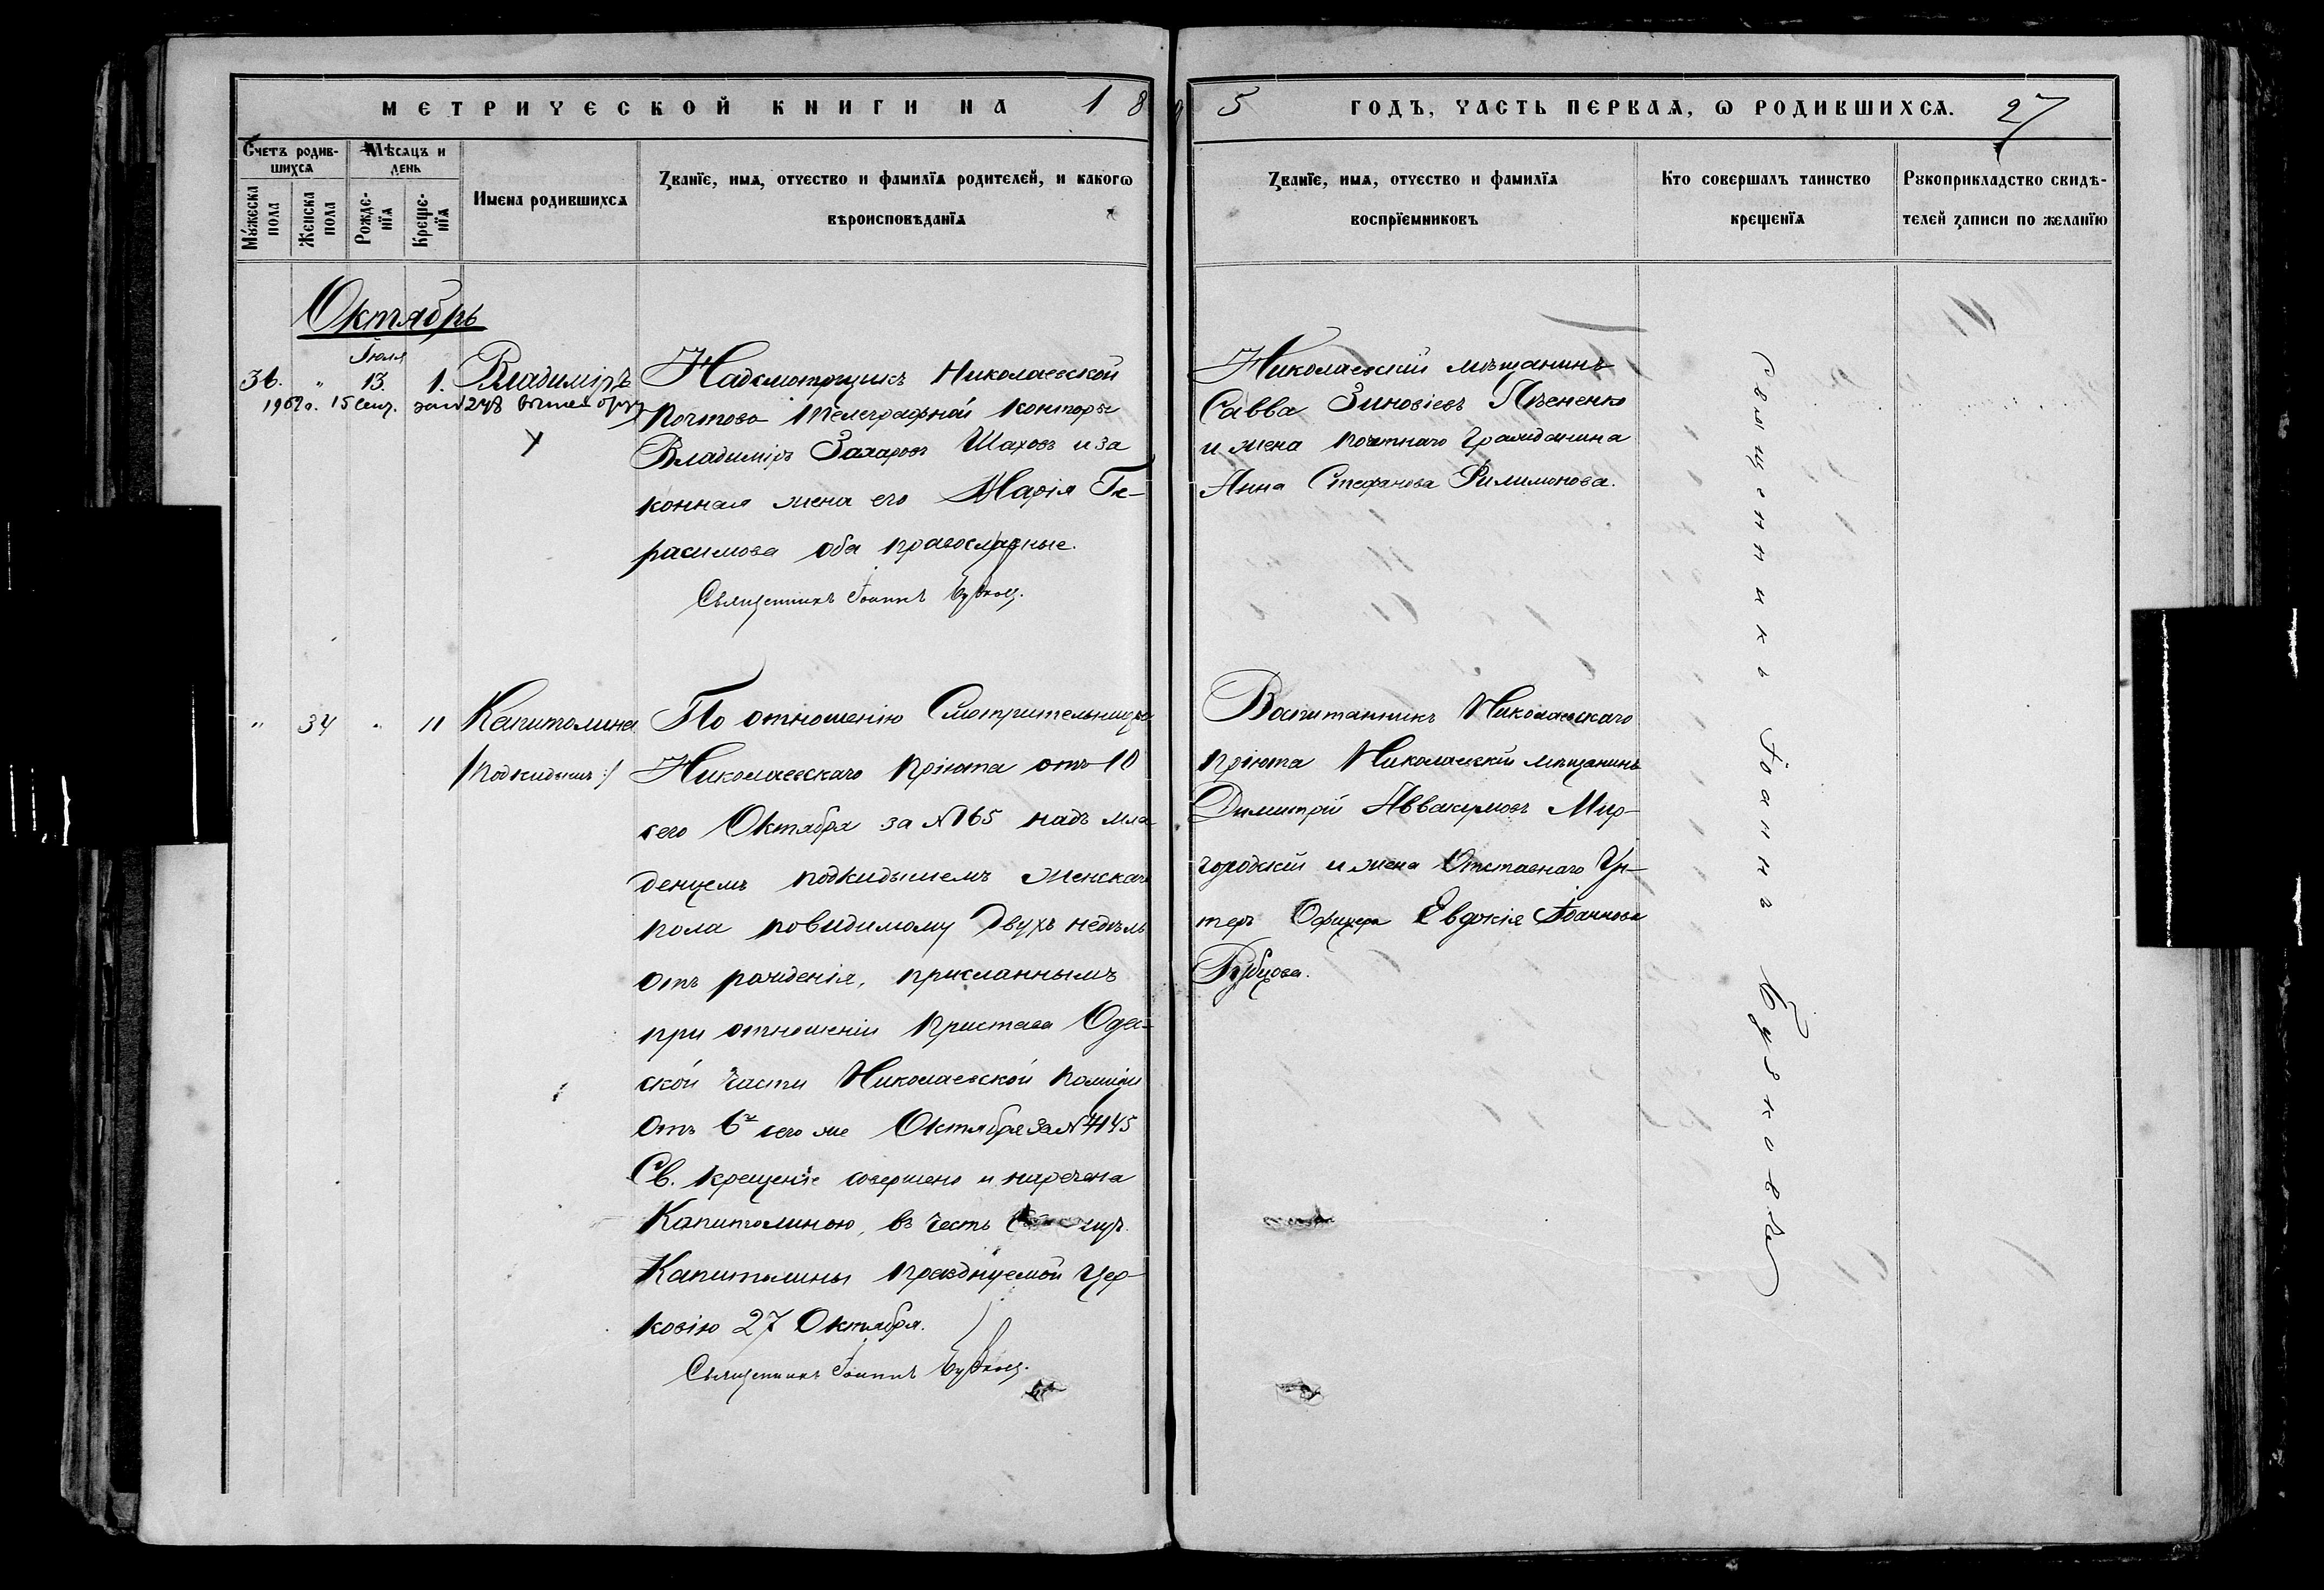 МЕТРИЧЕСКОЙ КНИГИ НА 18
5 ГОДЪ, ЧАСТЬ ПЕРВАЯ, Ѡ РОДИВШИХСЯ. 27
Счетъ родив-
шихся
Мѣсяцъ и
день
Мужеска
пола
Женска
пола
Рожде-
нїя
Креще-
нїя
Имена родившихся
Званїе, имя, отчество и фамилїя родителей, и какогѡ
вѣроисповѣданїя
Званїе, имя, отчество и фамилїя
воспрїемниковъ
Кто совершалъ таинство
крещенїя
Рукоприкладство свидѣ-
телей записи по желанїю
Октябрь
Іюля
36. " 13. 1. Владиміръ
15 сент. 248
Надсмотрщикъ Николаевской
Почтово Телеграфной Конторы
Владиміръ Захаровъ Шаховъ и за
конная жена его Марія Ге-
расимова оба православные.
Священникъ Іоаннъ
Николаевскій мѣщанинъ
Савва Зиновіевъ
и жена почетнаго гражданина
Анна Стефанова Филимонова.
" 34 " 11 Капитолина
/подкидышъ:/
По отношенію Смотрительницы
Николаевскаго Пріюта отъ 10
сего Октября за №165 надъ мла
денцемъ подкидышемъ женскаго
пола повидимому двухъ недѣль
отъ рожденія, присланнымъ
при отношеніи Пристава Одес-
ской части Николаевской Полиціи
отъ 6го сего же Октября за № 4145
Св. Крещеніе совершено и наречена
Капитолиною, въ честь муч.
Капитолины празднуемой Цер-
ковію 27 Октября.
Священникъ Іоаннъ
Воспитанникъ Николаевскаго
Пріюта Николаевскій мѣщанинъ
Димитрій Аввакумовъ Мир-
городскій и жена Отставнаго Ун-
теръ Офицера Евдокія Іоаннова
Священникъ Іоаннъ